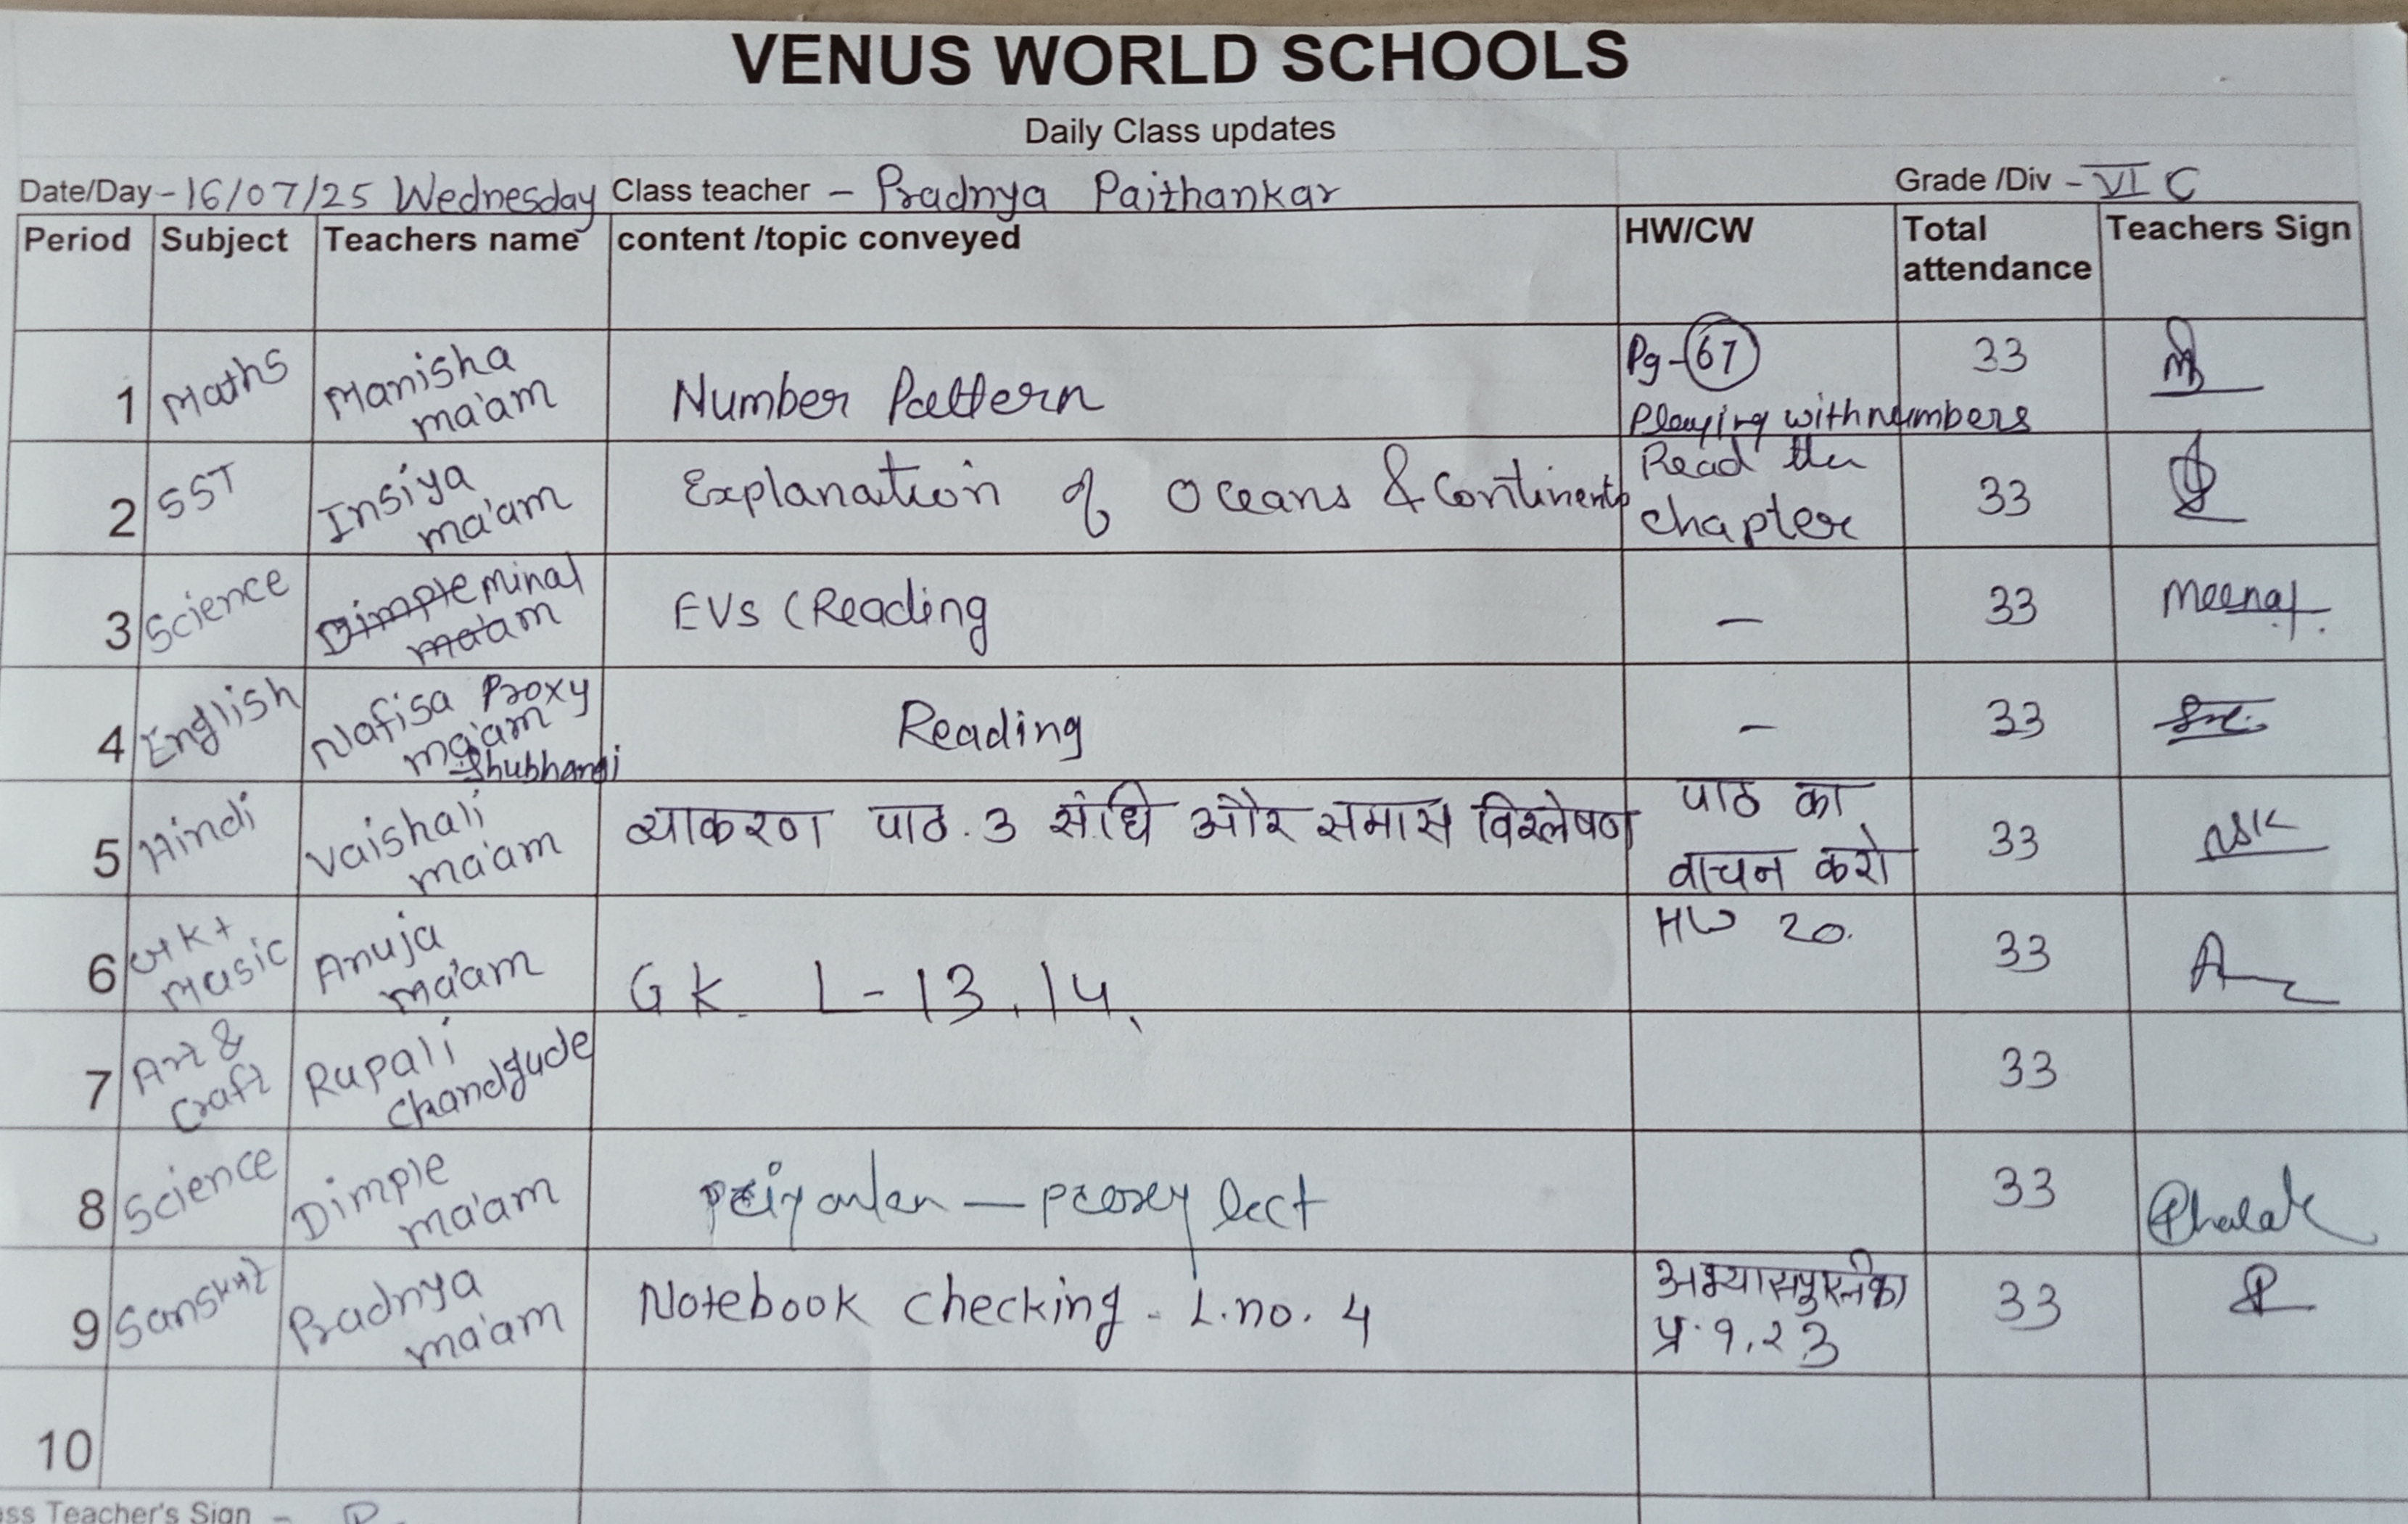 VENUS WORLD SCHOOLS
Daily Class updates
Date/Day - 16/07/25 Wednesday Class teacher - Pradnya Paithankar Grade /Div - VI C
Period Subject Teachers name content /topic conveyed HW/CW Total attendance Teachers Sign
1 Maths Manisha ma'am Number Pattern Pg - 67 Playing with numbers 33
2 SST Insiya ma'am Explanation of Oceans & Continents Read the chapter 33
3 Science Dimple minal ma'am EVs (Reading - 33 Meenal
4 English Nafisa Proxy ma'am Shubhangi Reading - 33
5 Hindi Vaishali ma'am व्याकरण पाठ. 3 संधि और समास विश्लेषण पाठ का वाचन करो 33
6 GK + Music Anuja ma'am GK. L - 13, 14. HW 20. 33
7 Art & Craft Rupali Chandgude 33
8 Science Dimple ma'am - proxy lect 33
9 Sanskrit Pradnya ma'am Notebook checking - L.no. 4 अभ्यासपुस्तिका प्र. १, २ ३ 33
10
ss Teacher's Sign -